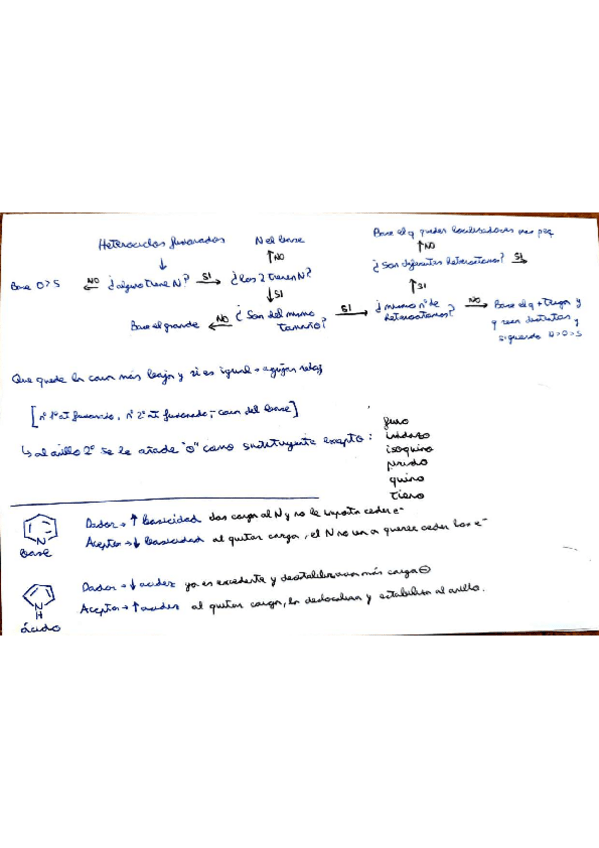 Heterociclos fusionados
N el base
Base el q pueden localizadores más peq
↑NO
↑NO
¿Son diferentes heteroátomos? SI→
Base O>S ←NO ¿alguno tiene N? SI→ ¿los 2 tienen N?
↓SI
↑SI
Base el grande ←NO ¿Son del mismo tamaño? SI→ ¿mismo nº de heteroátomos? NO→ Base el q + tenga y q sean distintos y siguiendo
Que quede la cara más baja y si es igual → agujas reloj
[nº 1º at fusionado, nº 2º at fusionado - cara del base]
↳ al anillo 2º se le añade "o" como sustituyente excepto:
furo
imidazo
isoquino
pirido
quino
tieno
N
base
Dador → ↑ basicidad das carga al N y no le importa ceder e⁻
Aceptor → ↓ basicidad al quitar carga, el N no va a querer ceder los e⁻
N
H
ácido
Dador → ↓ acidez ya es excedente y desestabiliza más carga ⊖
Aceptor → ↑ acidez al quitar carga, la deslocaliza y estabiliza al anillo.